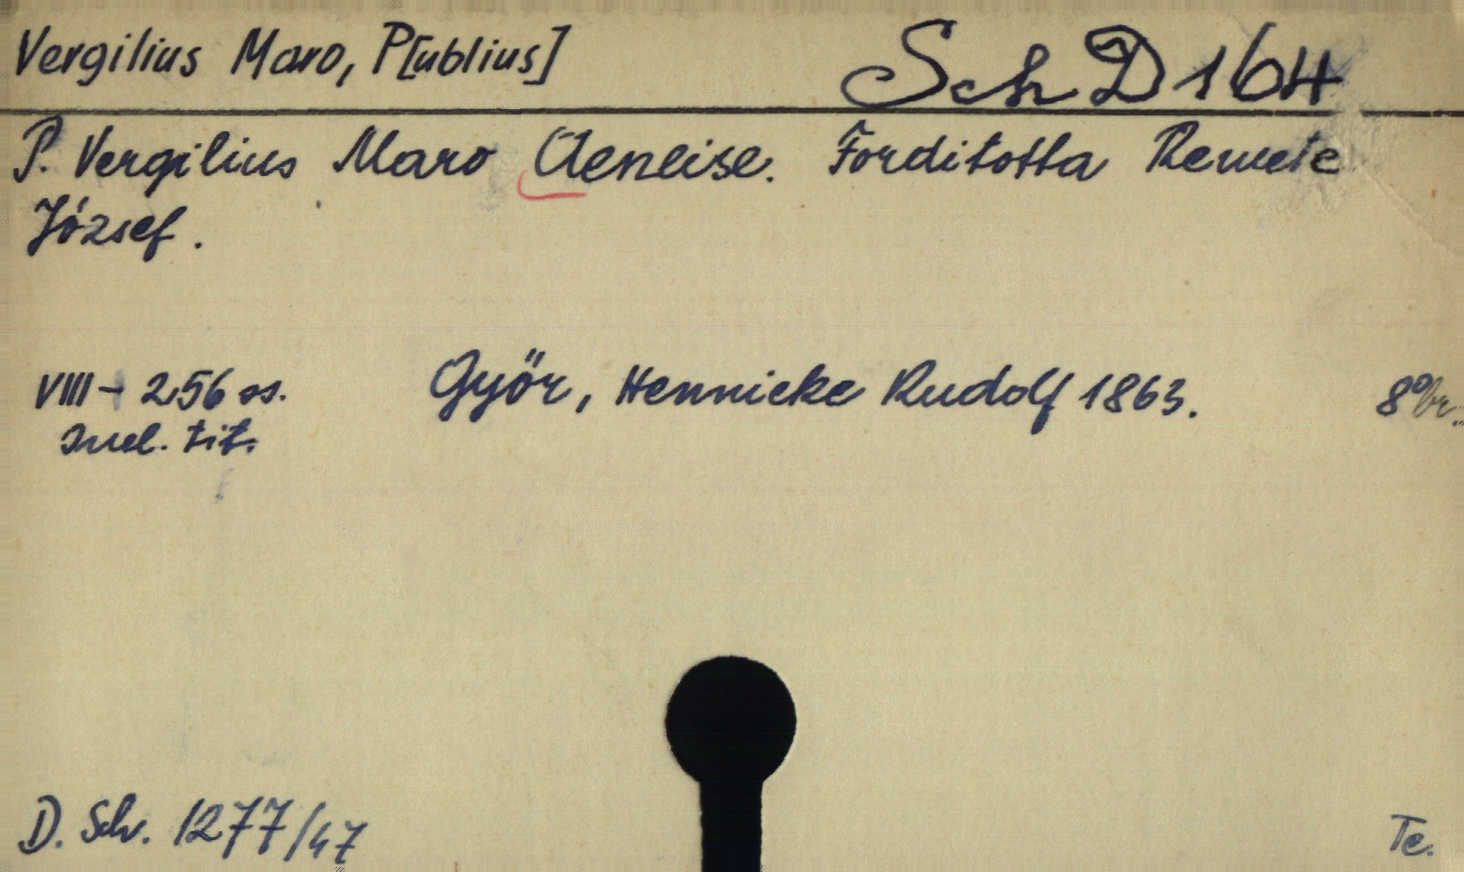 Vergilius Maro, P[ublius] Sch D 164
P. Vergilius Maro Aeneise. Forditotta Remete
József.
VIII + 256 os. Győr, Hennicke Rudolf 1863. 8° br.
Incl. tit.
D. Sch. 1277/47 Te.